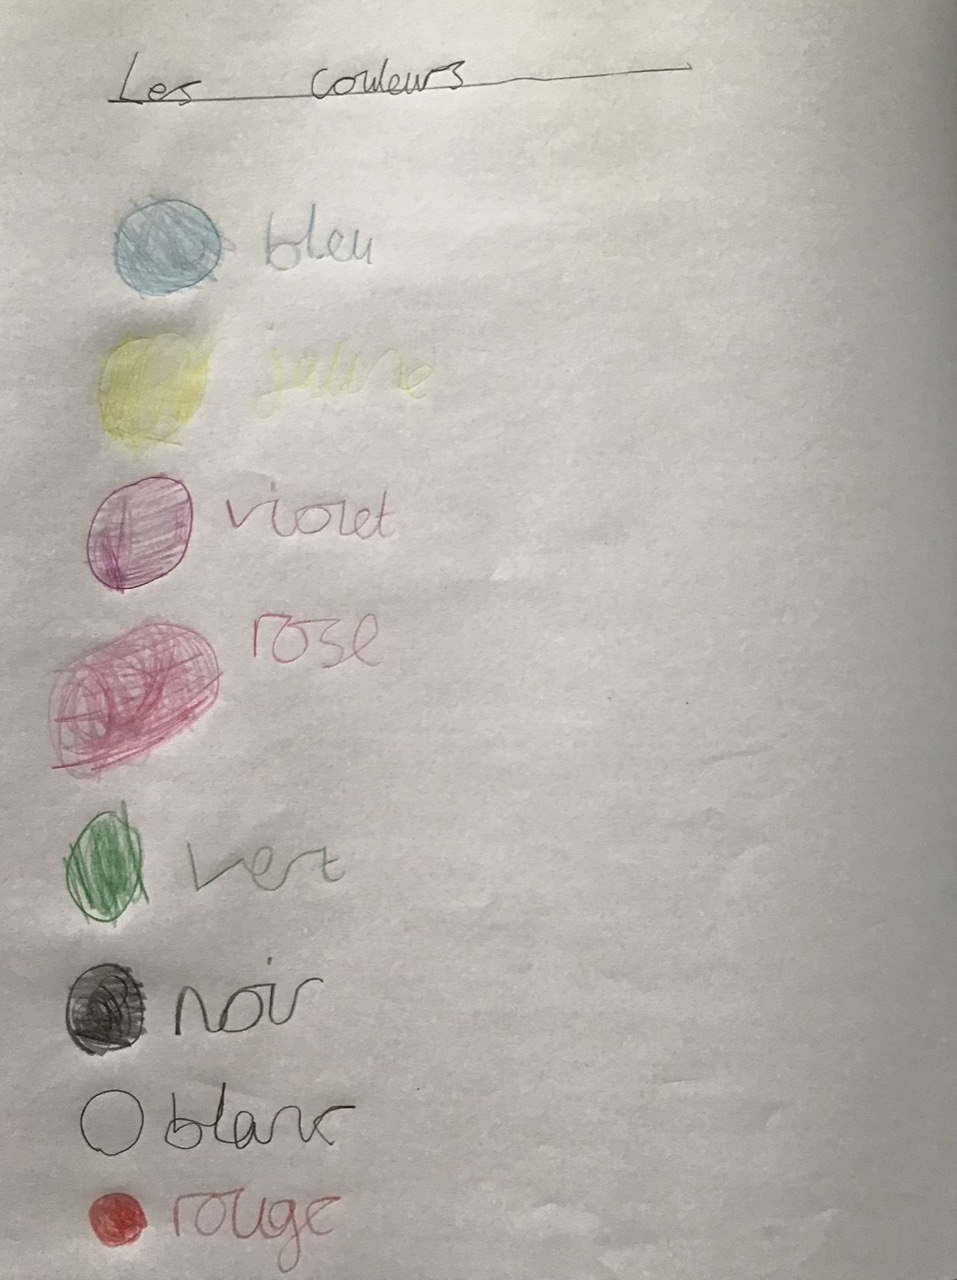 Les couleurs
bleu
jaune
violet
rose
vert
noir
blanc
rouge